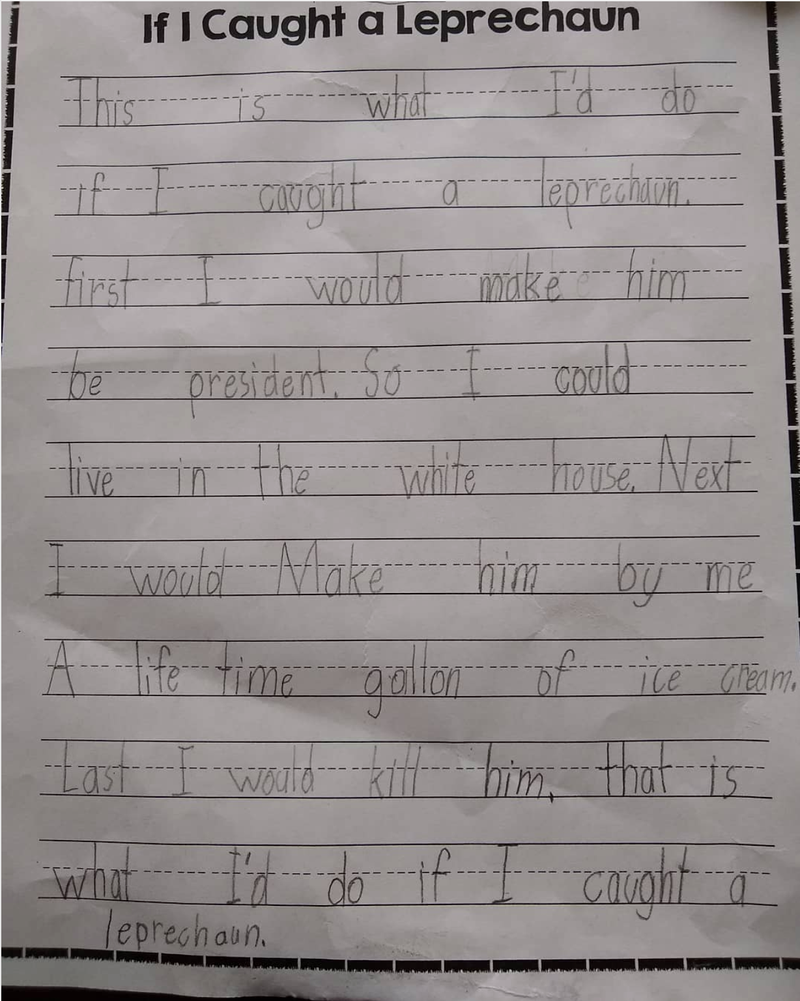 If I Caught a Leprechaun
This is what I'd do
if I caught a leprechaun.
first I would make him
be president. So I could
live in the white house. Next
I would Make him by me
A life time gallon of ice cream.
Last I would kill him, that is
what I'd do if I caught a
leprechaun.